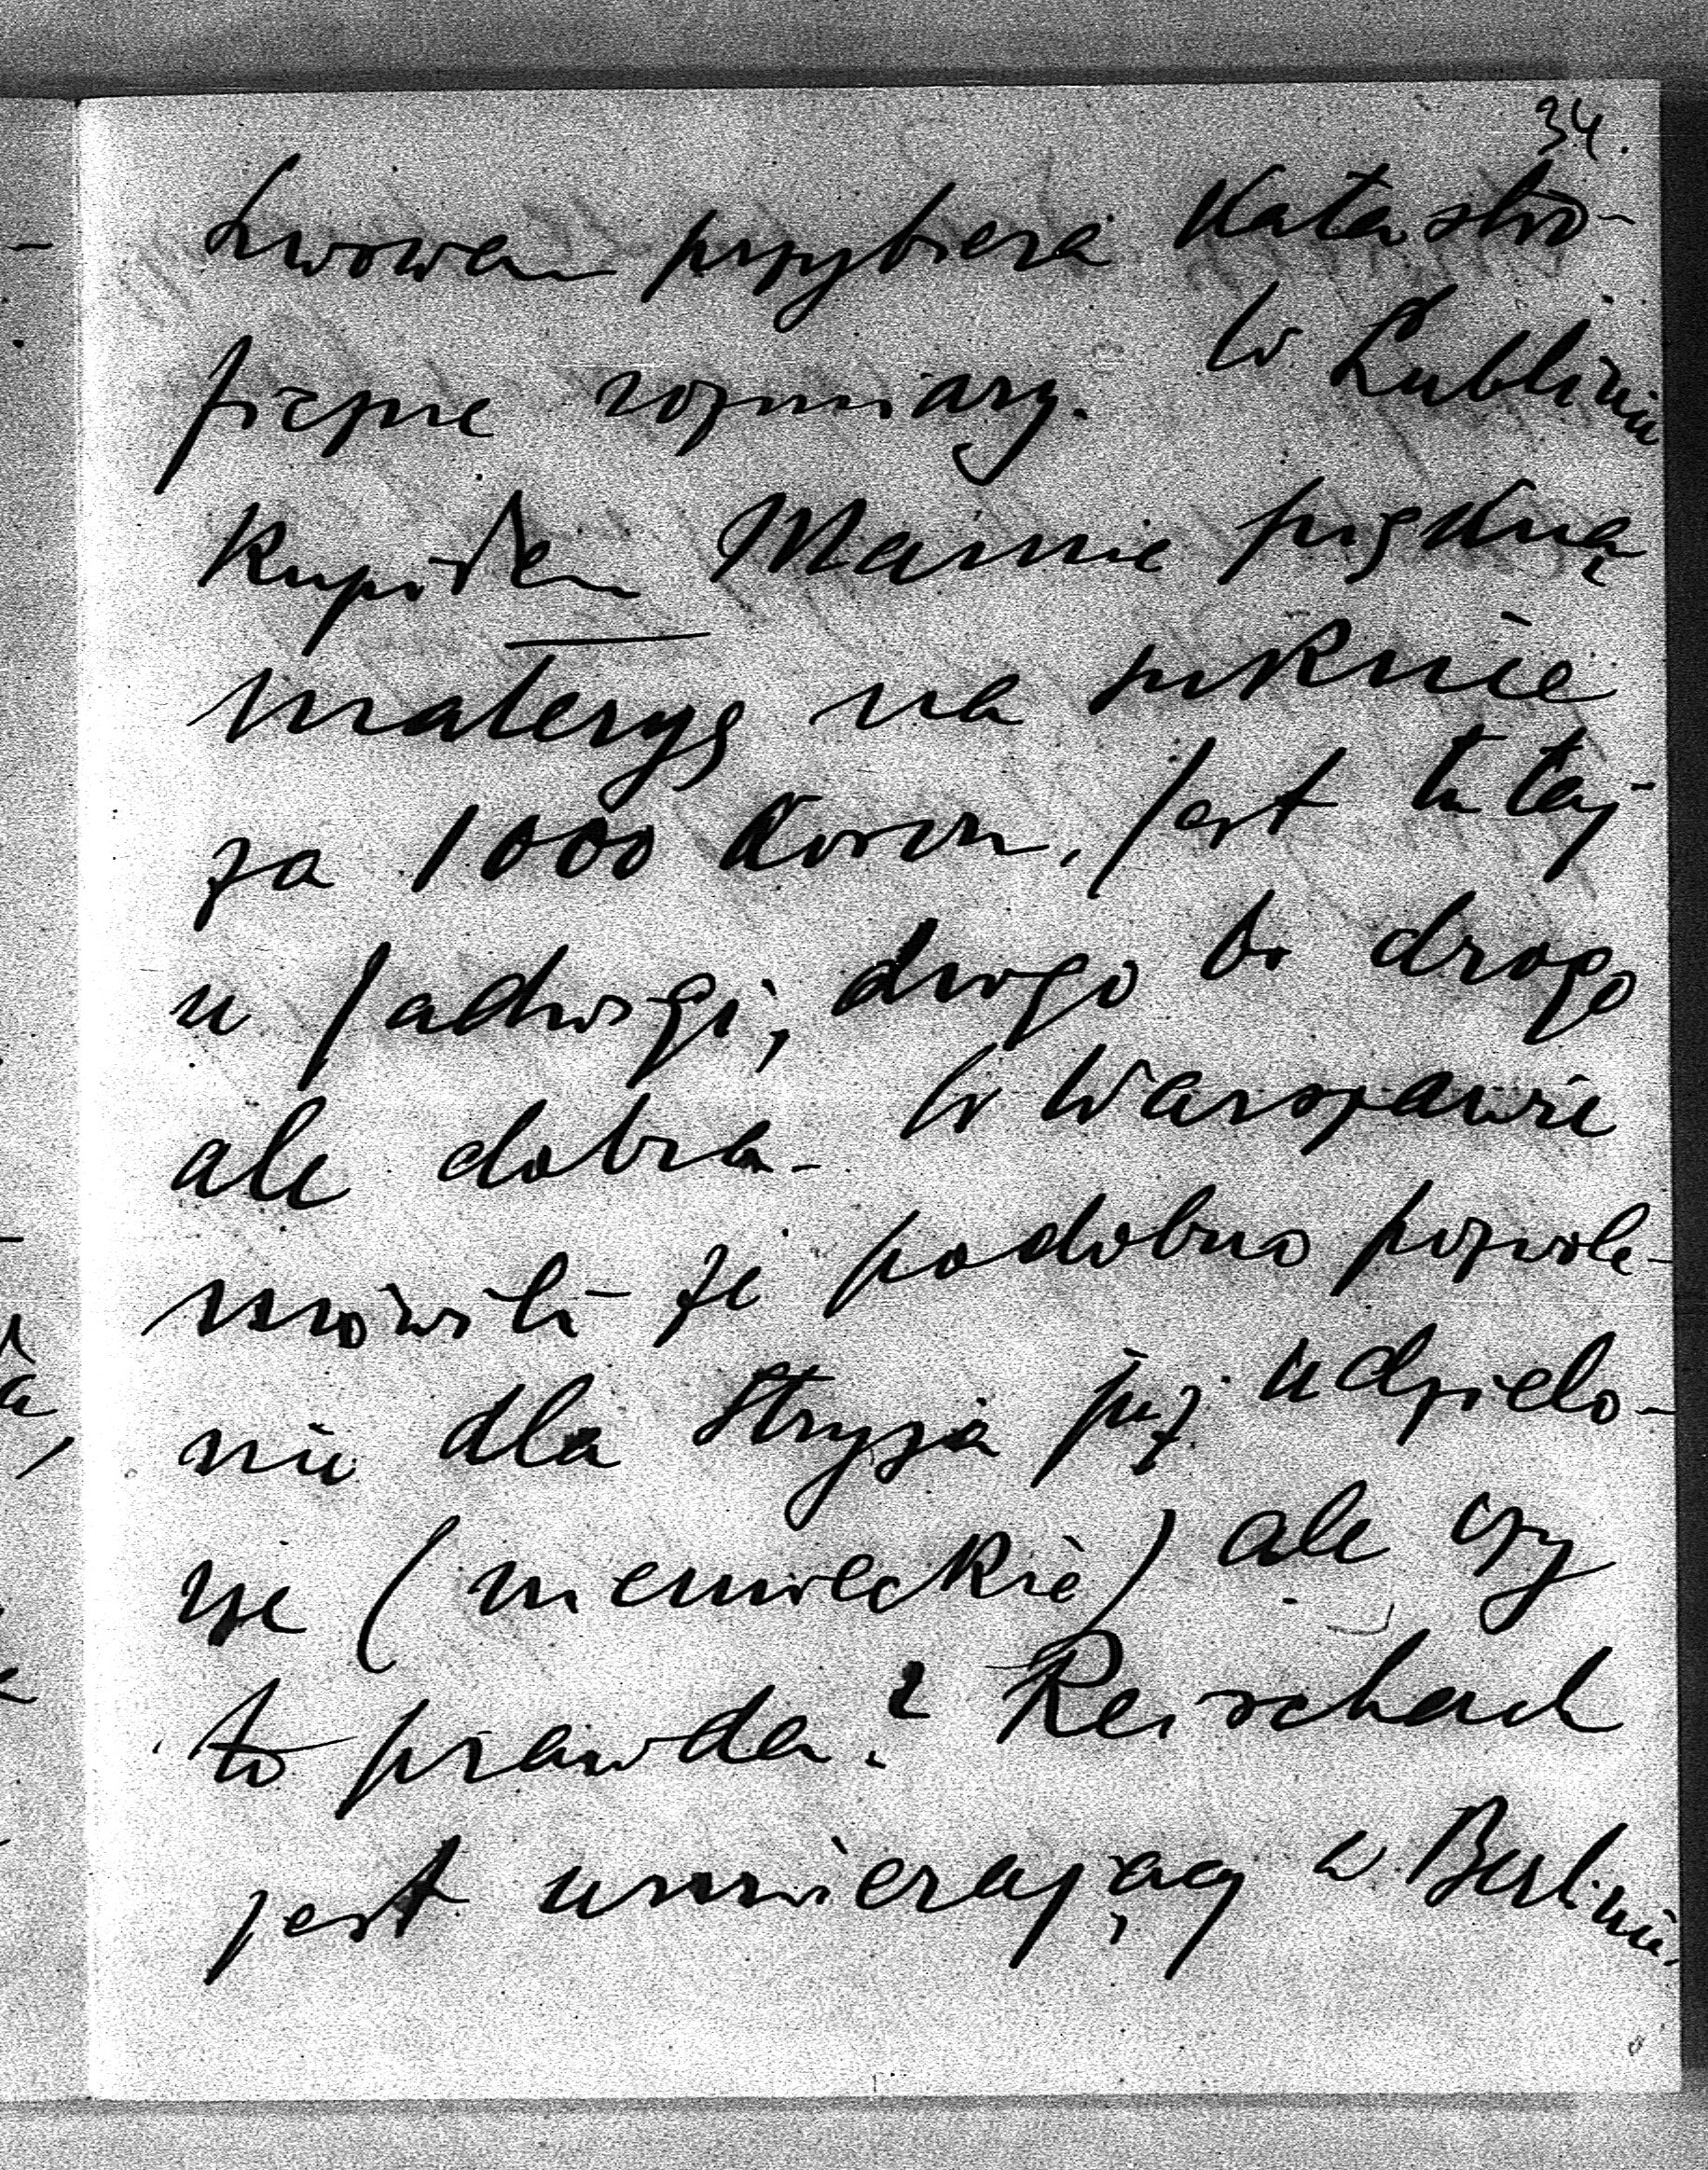 34.
Lwowem przybiera katastro-
ficzne rozmiary. W Lublinie
kupiłem Mamie piękną
materyę na suknie
za 1000 koron. Jest tutaj
u Jadwigi, drogo bo drogo
ale dobra. W Warszawie
mówili że podobno pozwole-
nie dla Stryja już udzielo-
ne (niemieckie) ale czy
to prawda? Reischach
jest umierający w Berlinie.